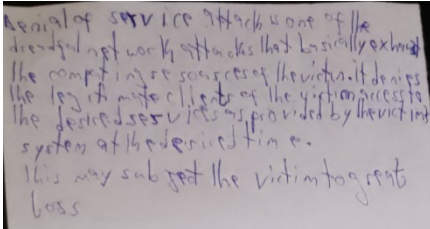 Denial of service attack is one of the
dreadful network attacks that basically exhaust
the computing resources of the victim. it denies
the legitimate clients of the victim access to
the desired services as provided by the victim
system at the desired time.
This may subject the victim to great
loss